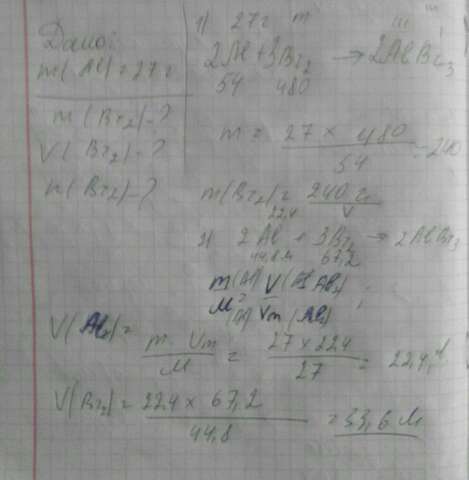 Дано:
m(Al) = 27 г
m(Br₂) - ?
V(Br₂) - ?
n(Br₂) - ?
1) 27г m
2Al + 3Br₂ → 2AlBr₃
54 480
m = 27 × 480 / 54 = 240
m(Br₂) = 240 г
22,4 V
2) 2Al + 3Br₂ → 2AlBr₃
44,8 л 67,2
V(Al) = m · Vm / M = 27 × 22,4 / 27 = 22,4 л
V(Br₂) = 22,4 × 67,2 / 44,8 = 33,6 л